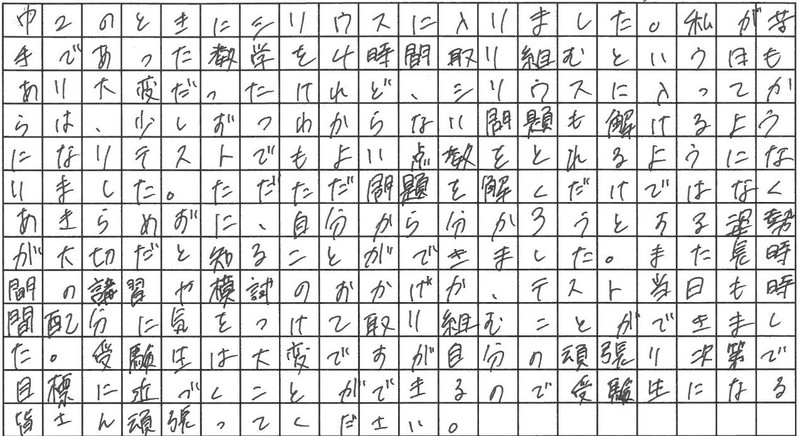 中2のときにシリウスに入りました。私が苦
手であった数学を4時間取り組むという日も
あり大変だったけれど、シリウスに入ってか
らは、少しずつわからない問題も解けるよう
になりテストでもよい点数をとれるようにな
りました。ただただ問題を解くだけではなく
あきらめずに、自分から分かろうとする姿勢
が大切だと知ることができました。また長時
間の講習や模試のおかげか、テスト当日も時
間配分に気をつけて取り組むことができまし
た。受験生は大変ですが自分の頑張り次第で
目標に近づくことができるので受験生になる
皆さん頑張ってください。